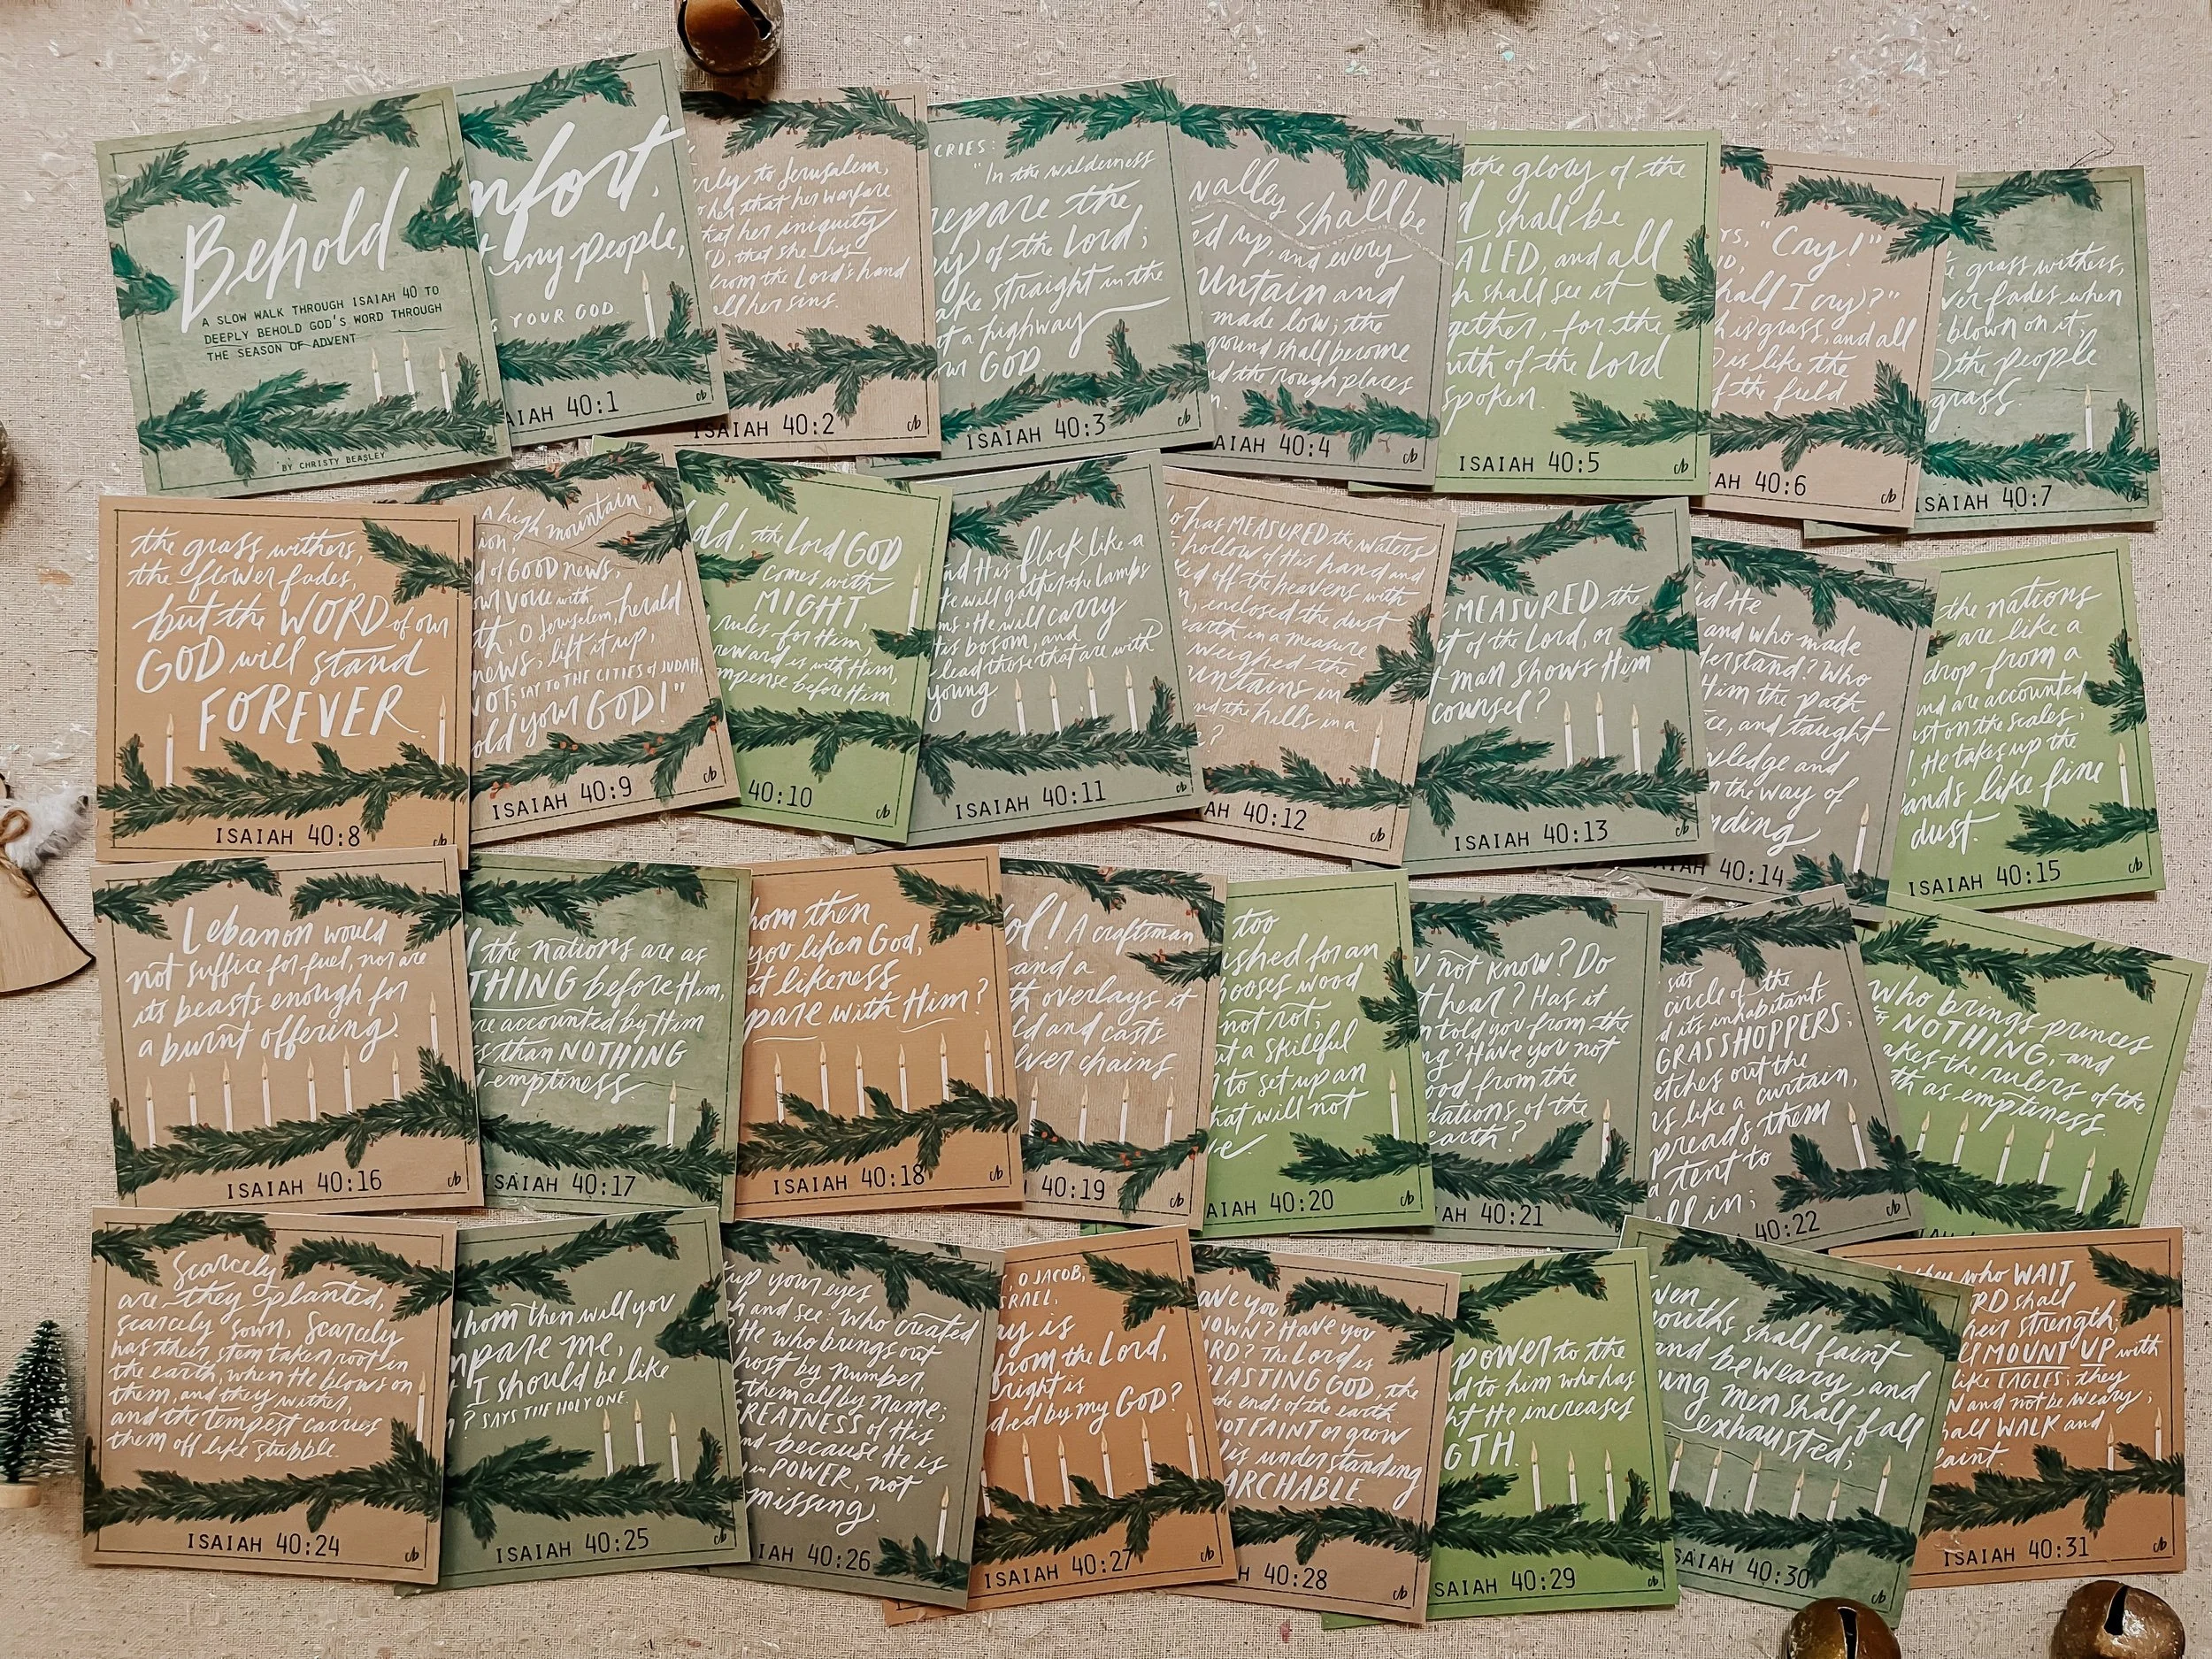 Behold
A SLOW WALK THROUGH ISAIAH 40 TO
DEEPLY BEHOLD GOD'S WORD THROUGH
THE SEASON OF ADVENT
BY CHRISTY BEASLEY
mfort,
my people,
YOUR GOD.
AIAH 40:1
rly to Jerusalem,
her that her warfare
hat her iniquity
D, that she has
from the Lord's hand
all her sins.
ISAIAH 40:2
CRIES:
"In the wilderness
repare the
y of the Lord;
ake straight in the
t a highway
our GOD.
ISAIAH 40:3
valley shall be
ed up, and every
untain and
made low; the
ground shall become
nd the rough places
n.
AIAH 40:4
the glory of the
d shall be
ALED, and all
h shall see it
gether, for the
uth of the Lord
spoken.
ISAIAH 40:5
ys, "Cry!"
hall I cry?"
h is grass, and all
is like the
f the field.
AH 40:6
e grass withers,
wer fades when
blown on it;
the people
grass.
ISAIAH 40:7
the grass withers,
the flower fades,
but the WORD of our
GOD will stand
FOREVER.
ISAIAH 40:8
A high mountain,
ion,
d of GOOD news,
our voice with
th, O Jerusalem, herald
news; lift it up,
NOT; SAY TO THE CITIES of JUDAH,
old your GOD!"
ISAIAH 40:9
old, the Lord GOD
comes with
MIGHT,
rules for Him,
reward is with Him,
mpense before Him.
40:10
nd His flock like a
He will gather the lambs
ms; He will carry
His bosom, and
lead those that are with
young.
ISAIAH 40:11
o has MEASURED the waters
hollow of His hand and
ked off the heavens with
n, enclosed the dust
earth in a measure
weighed the
untains in
nd the hills in a
?
AH 40:12
MEASURED the
it of the Lord, or
man shows Him
counsel?
ISAIAH 40:13
id He
and who made
derstand? Who
Him the path
ce, and taught
wledge and
the way of
nding.
40:14
the nations
are like a
drop from a
and are accounted
ust on the scales;
, He takes up the
ands like fine
dust.
ISAIAH 40:15
Lebanon would
not suffice for fuel, nor are
its beasts enough for
a burnt offering.
ISAIAH 40:16
l the nations are as
THING before Him,
re accounted by Him
s than NOTHING
d emptiness
ISAIAH 40:17
hom then
you liken God,
at likeness
pare with Him?
ISAIAH 40:18
ol! A craftsman
and a
th overlays it
ld and casts
lver chains
40:19
too
ished for an
ooses wood
not rot;
ut a skillful
to set up an
hat will not
ve.
AIAH 40:20
not know? Do
t hear? Has it
n told you from the
ng? Have you not
ood from the
dations of the
earth?
AH 40:21
sits
circle of the
d its inhabitants
GRASSHOPPERS;
etches out the
ns like a curtain,
preads them
a tent to
ell in;
40:22
who brings princes
to NOTHING, and
akes the rulers of the
th as emptiness.
Scarcely
are they planted,
scarcely sown, Scarcely
has their stem taken root in
the earth, when He blows on
them, and they wither,
and the tempest carries
them off like stubble.
ISAIAH 40:24
whom then will you
mpare me,
t I should be like
? SAYS THE HOLY ONE.
ISAIAH 40:25
up your eyes
h and see: Who created
? He who brings out
host by number,
them all by name;
GREATNESS of His
nd because He is
in POWER, not
missing.
IAH 40:26
, O JACOB,
SRAEL,
ay is
from the Lord,
right is
ded by my GOD?
ISAIAH 40:27
ave you
NOWN? Have you
RD? The Lord is
LASTING GOD, the
the ends of the earth
NOT FAINT or grow
is understanding
ARCHABLE.
H 40:28
power to the
nd to him who has
ht He increases
GTH.
SAIAH 40:29
ven
ouths shall faint
and be weary, and
ung men shall fall
exhausted;
SAIAH 40:30
they who WAIT
RD shall
heir strength;
ll MOUNT UP with
like EAGLES; they
N and not be weary;
hall WALK and
faint.
ISAIAH 40:31